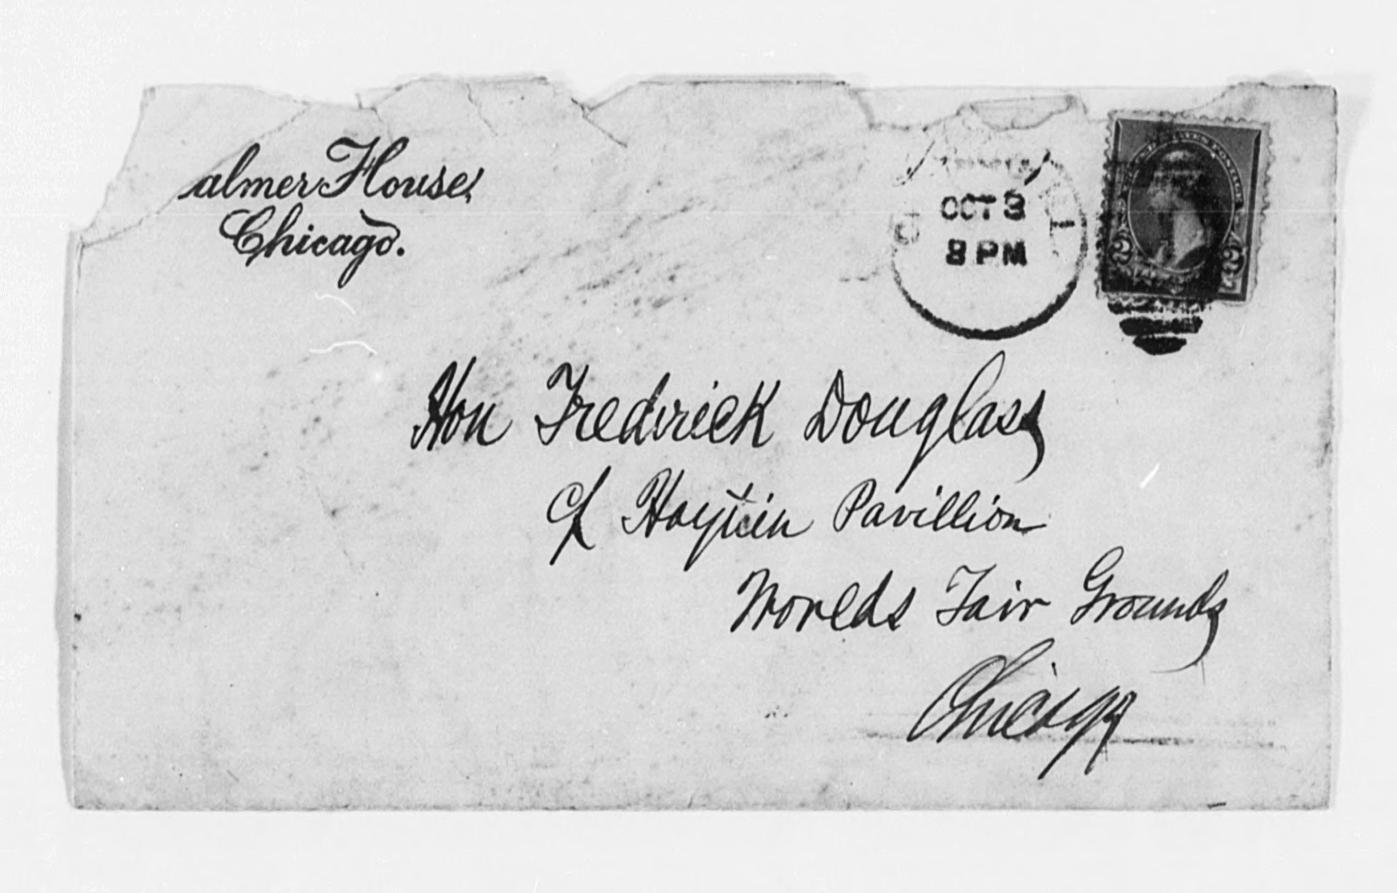 almer House,
Chicago.
OCT 3
8 PM
2 2
Hon Fredrick Douglass
c/ Haytiin Pavillion
Worlds Fair Grounds
Chicago